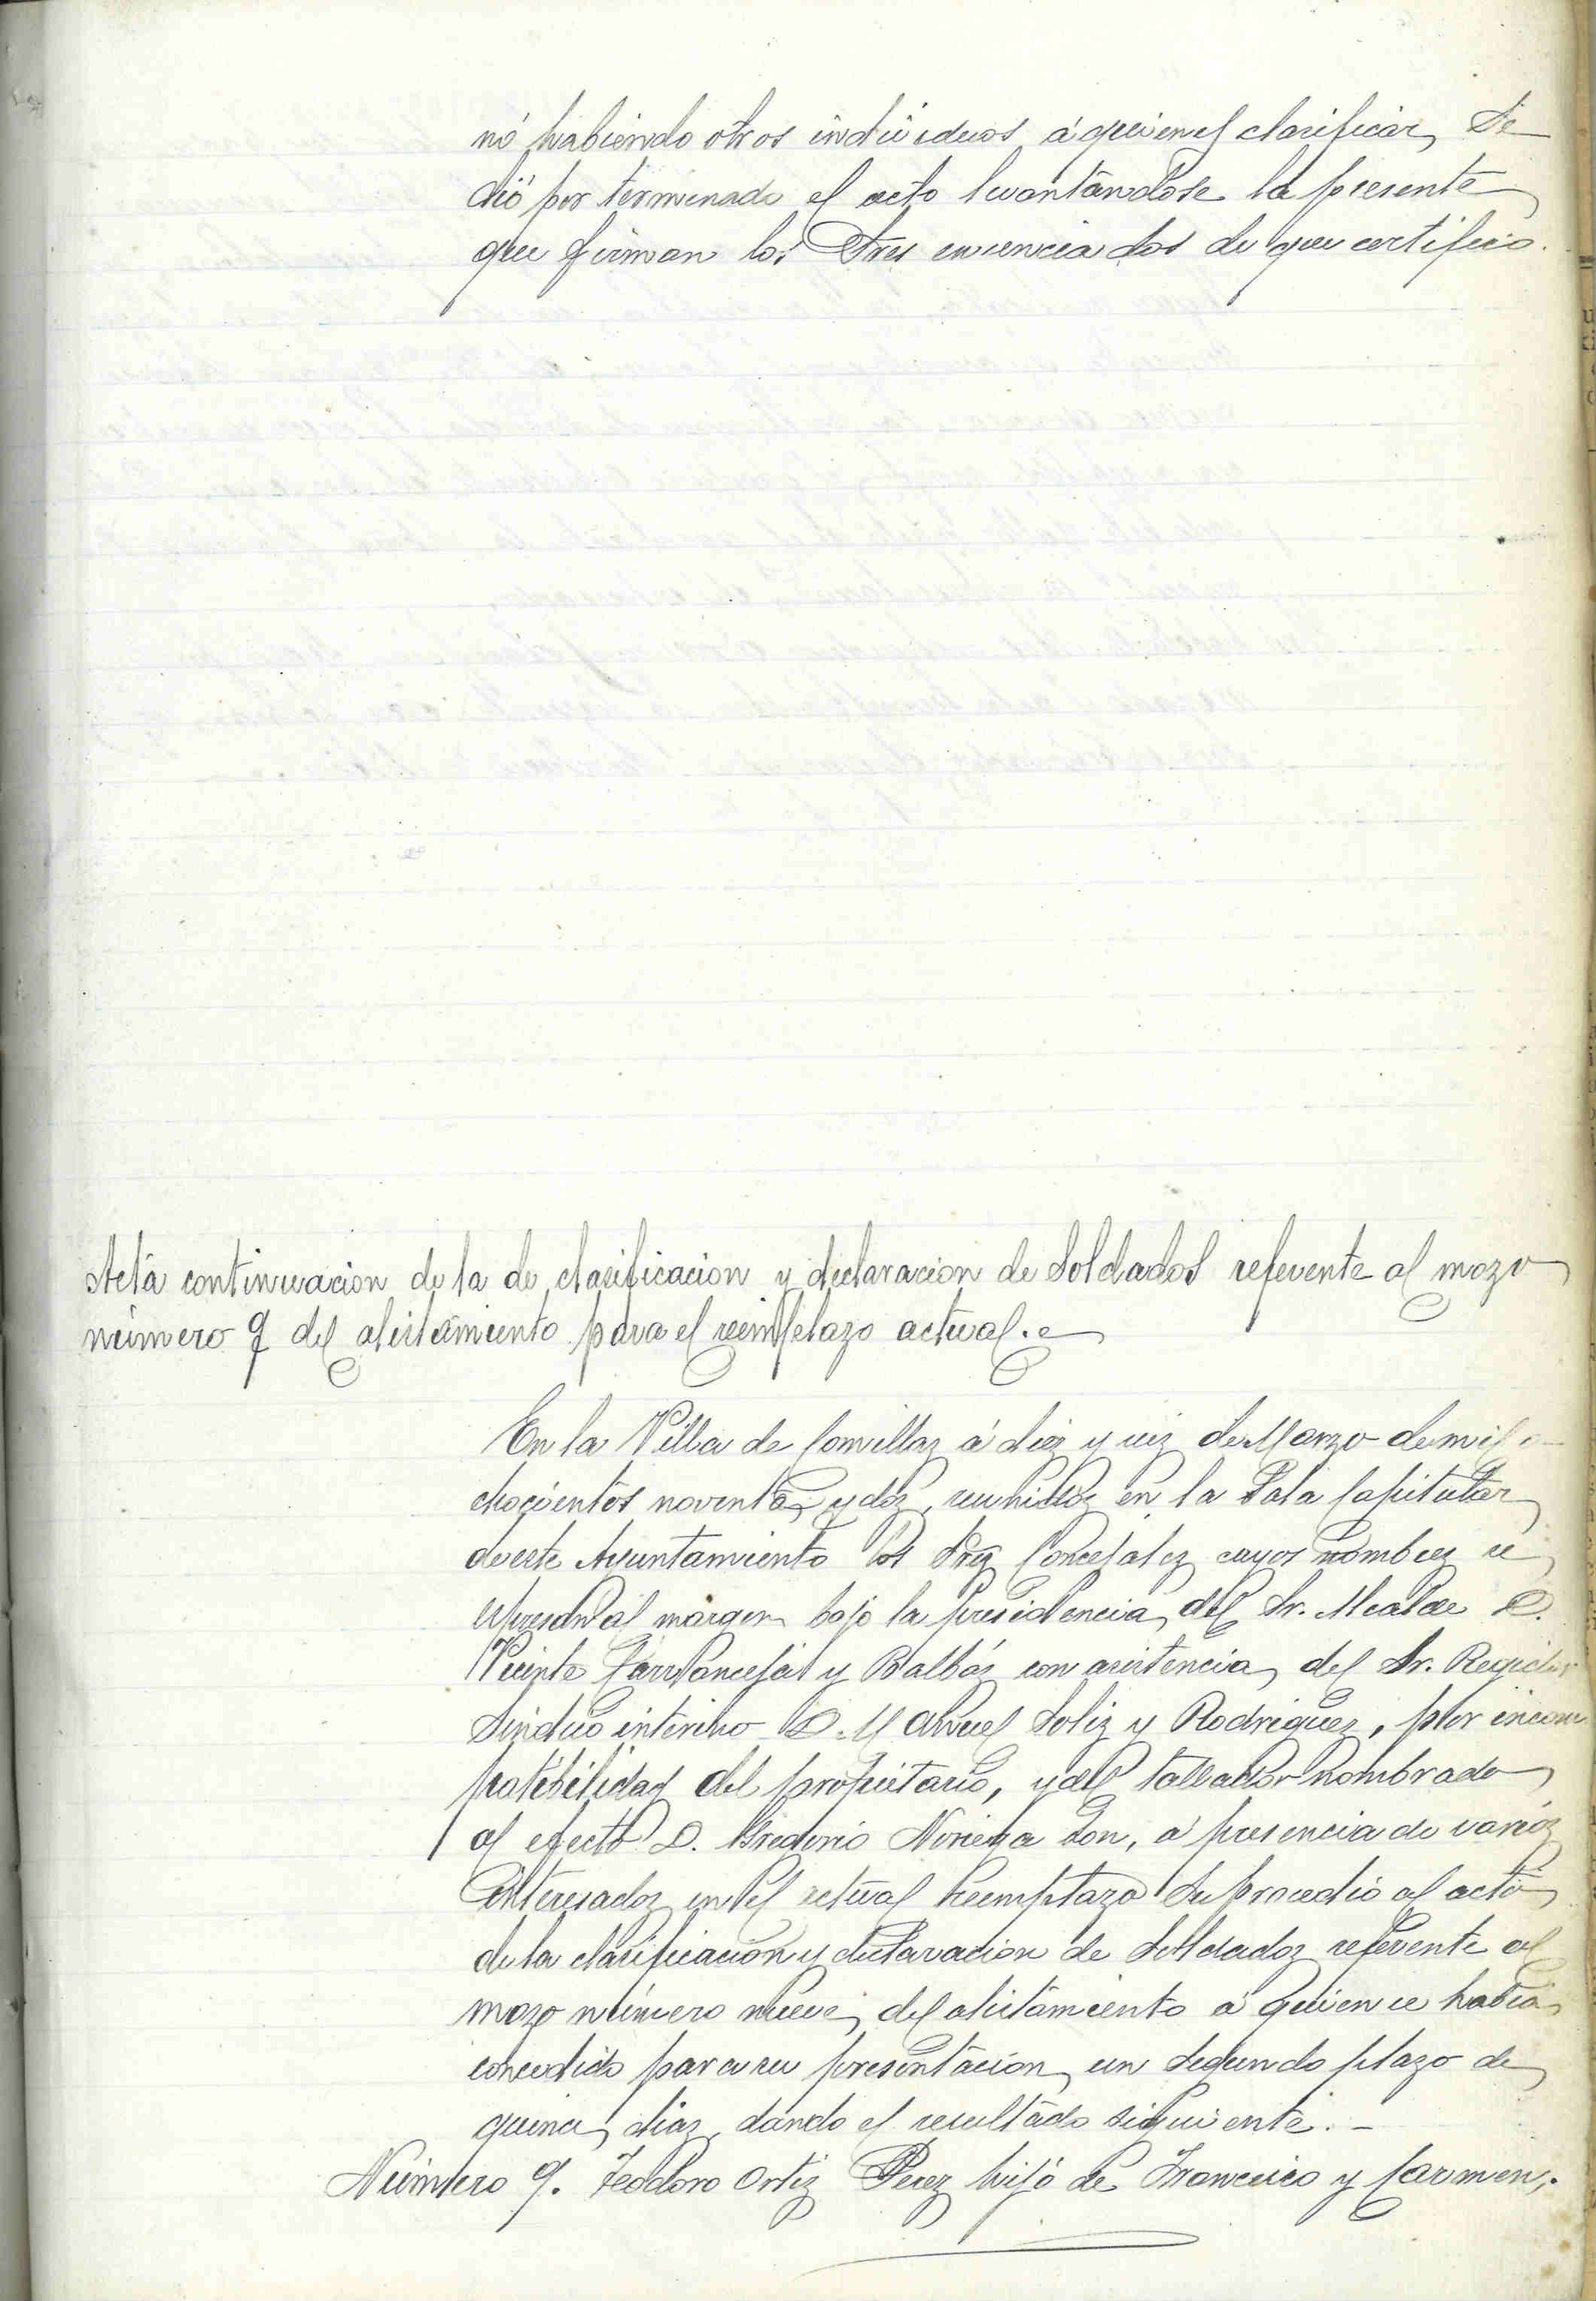 nó habiendo otros individuos á quienes clasificar, Se
dió por terminado el acto levantándose la presente
que firman los Sres enunciados de que certifico.
Acta continuacion de la de clasificacion y declaracion de Soldados referente al mozo
número 9 del alistamiento para el reemplazo actual.
En la Villa de Comillas á diez y seis de Marzo de mil o-
chocientos noventa y dos, reunidos en la Sala Capitular
de este Ayuntamiento los Sres Concejales cuyos nombres se
espresan al margen bajo la presidencia del Sr. Alcalde D.
Vicente Carrancejá y Balbás con asistencia del Sr. Regidor
Sindico interino D. Manuel Soliz y Rodriguez, por incom
patibilidad del propietario, y del tallador nombrado
al efecto D. Gregorio Noriega Son, á presencia de varios
interesados en el actual Reemplazo Se procedió al acto
de la clasificacion y declaracion de Soldados referente al
mozo número nueve, del alistamiento á quien se habia
concedido para su presentacion un segundo plazo de
quince dias, dando el resultado siguiente. -
Número 9. Teodoro Ortiz Perez hijo de Francisco y Carmen,.